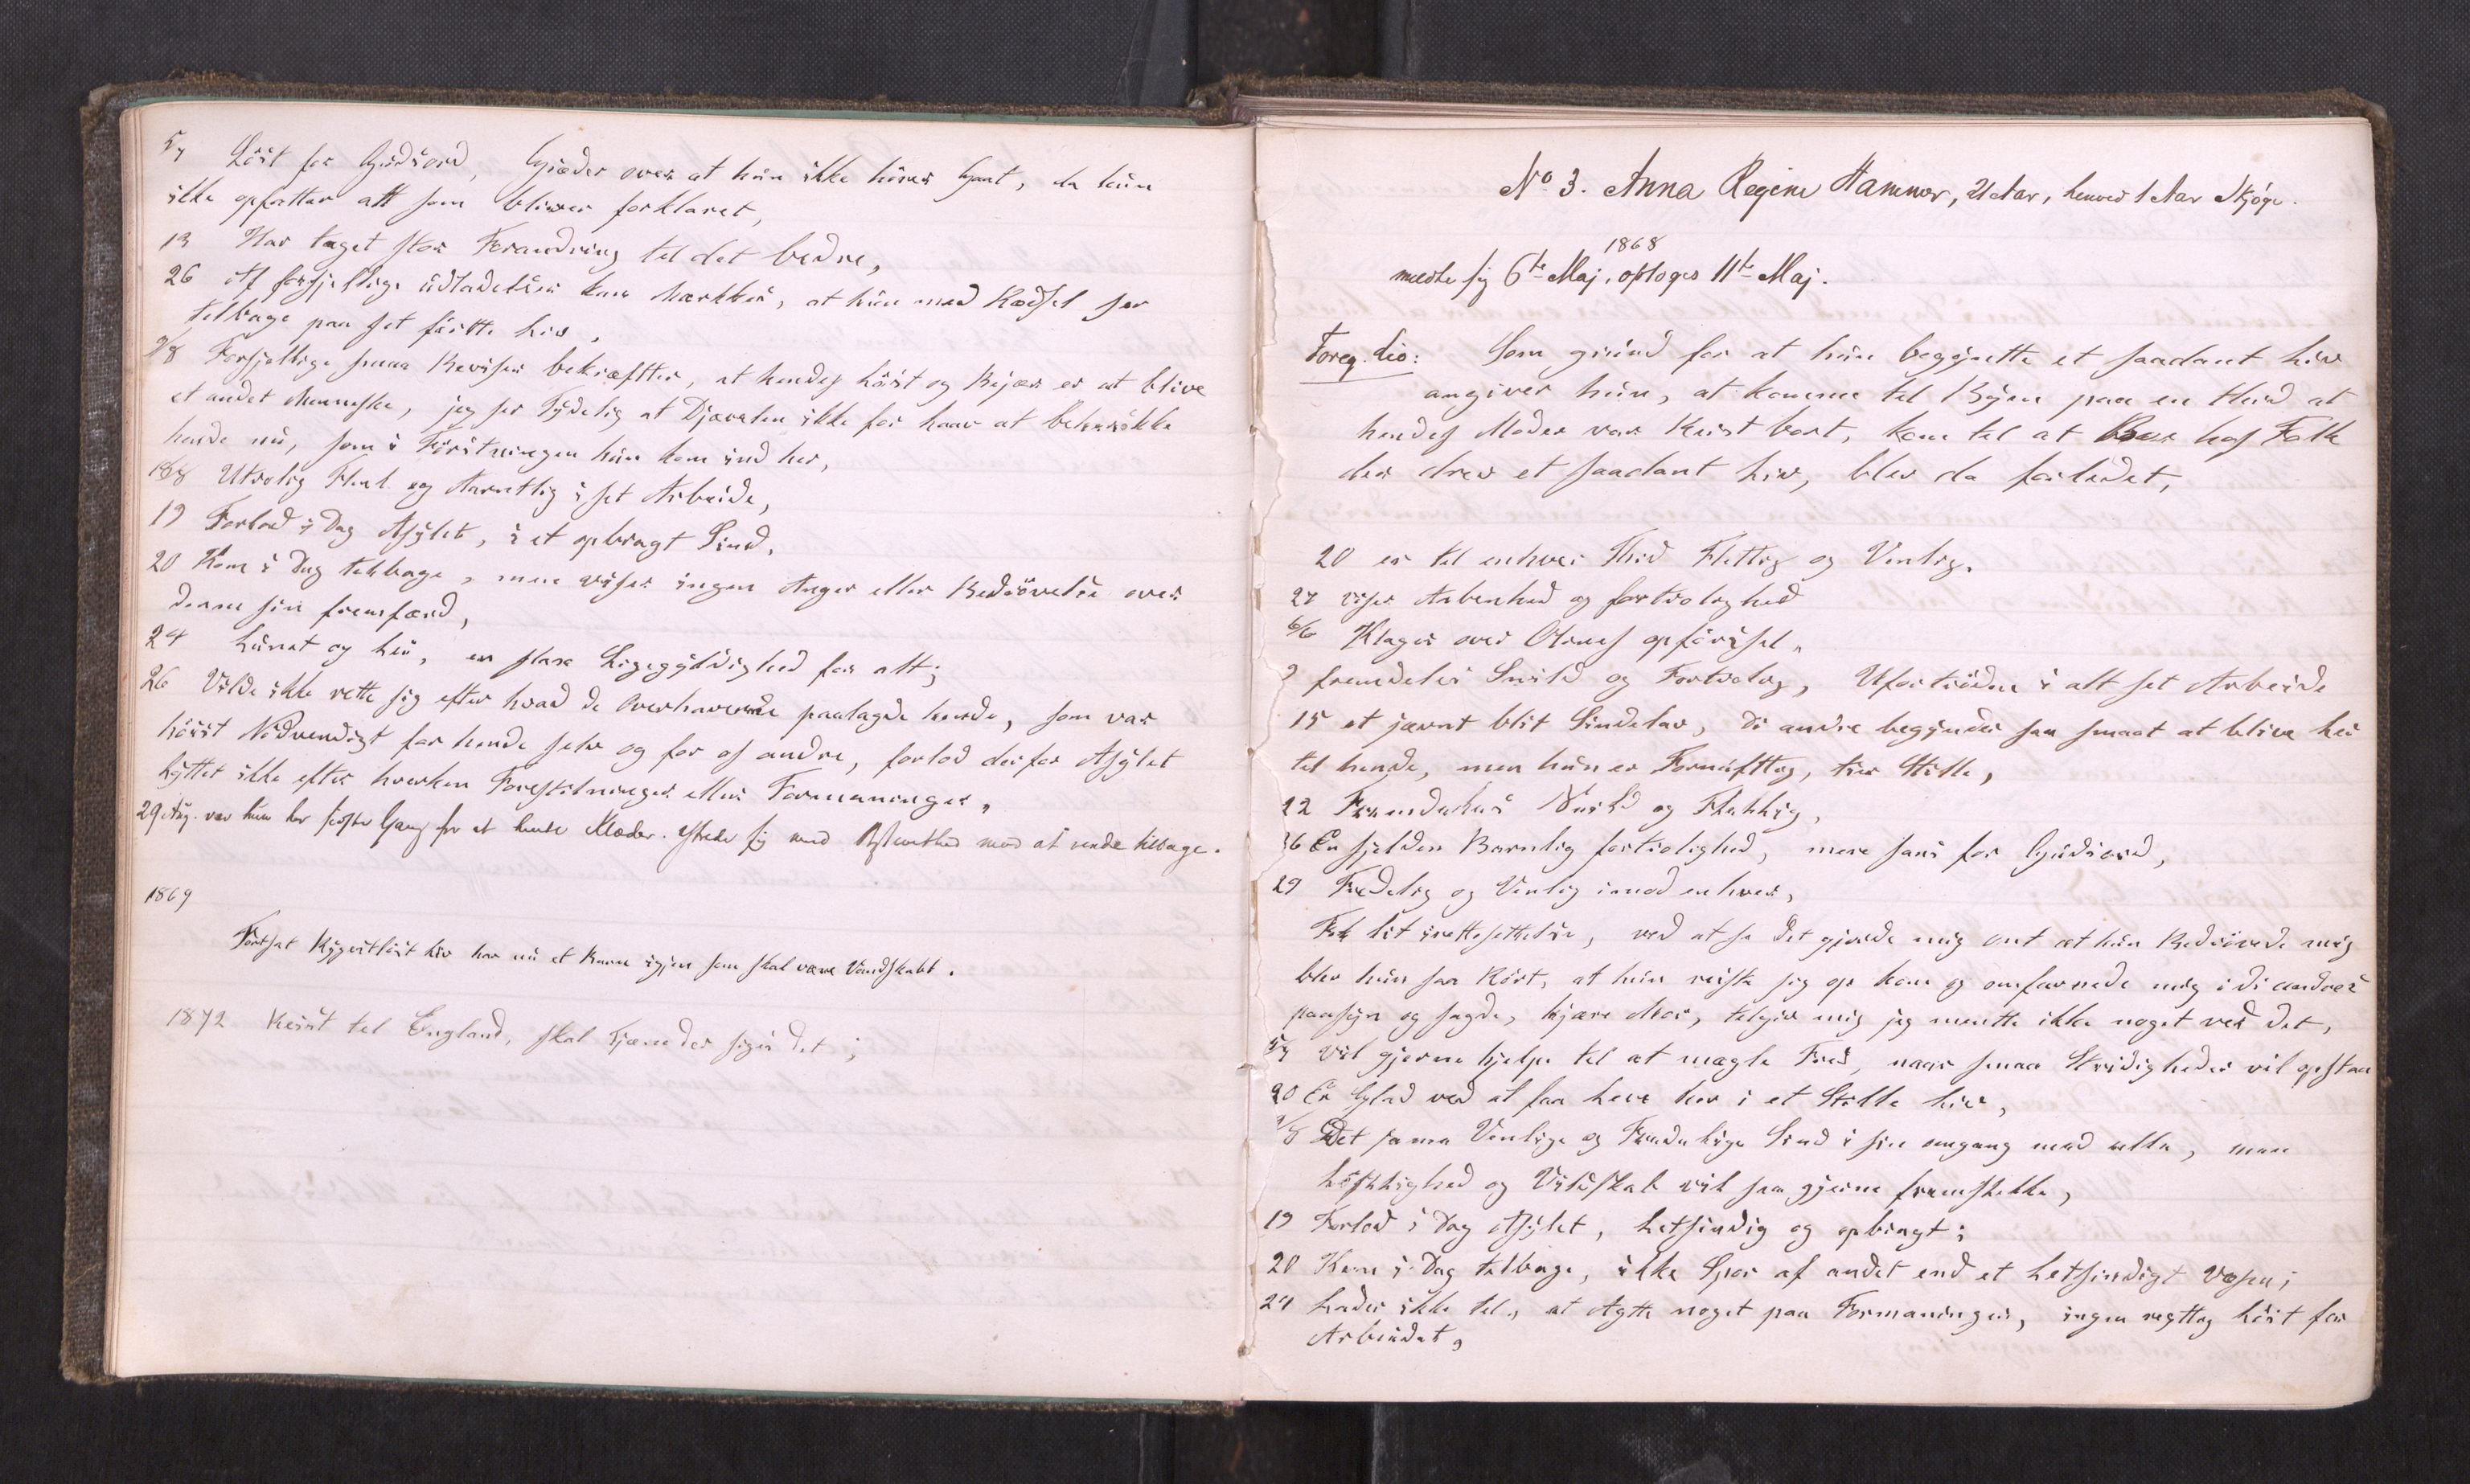 5/7 Löst for Gudsord, Græder over at hun ikke hører Godt, da hun
ikke opfatter alt som bliver forklaret,
13 Har taget stor Forandring til det bedre,
26 Af forsjellige Udtadelser kan mærkkes, at hun med Rædsel ser
telbage paa set førtte Liv.
9/8 Forsjellige smaa Beviser bekræftter, at hendes Löst og Bejær er at blive
et andet Menneske, jeg ser Tydelig at Djævelen ikke for haar at
hende nu, som i Förstningen hun kom ind her,
18/8 Utrolig Flink og Aarvttlig i set Arbeide,
19 Forlod i Dag Asylet, i et opbragt Sind,
20 Kom i Dag telbage, men viser ingen Anger eller Bedrövelse over
denne sin fremfærd,
24 Lunet og Lei, en slase Ligegyldighed for alt;
26 Vilde ikke rette sig efter hvad de Overhavende paalagde hende, som var
höist Nödvendigt for hende selv og for os andre, forlod derfor Asylet
Lyttet ikke efter hverken Forestilninger eller Formaninger,
29 Aug. var hun her sidste Gang for at hente Klæder. sig med mod at vende tilbage.
1869
Fortsat Ryggeslöst Liv har nu et Barn igjen som skal være Vandskabt.
1872 Reist til England, skal Tjæne der siges det;
No 3. Anna Regine Hammer, 21 Aar, henved 1 Aar Skjöge.
1868
meldte sig 6te Maj, optoges 11te Maj.
Foreg. Liv: Som grund for at hun begyntte et saadant Liv
angiver hun, at komme til Byen paa en thid at
hendes Moder var Reist bort, kom til at Boer hos Folk
der drev et saadant Liv, blev da forledet,
20 er til enhver Thid Flittig og Venlig.
27 viser Aabenhed og fortrolighed
6/6 Klager over Olines opförsel,
9 fremdeles Snild og Fortrolig, Ufortröden i alt set Arbeide
15 et jævnt blit Sindelav, Di andre begynder saa smaat at blive Lei
til hende, men hun er Fornufttig, tier Stille,
22 Fremdeles Snild og Flikkig,
26 En sjelden Barnlig fortrolighed, mere sans for Gudsord,
29 Fredelig og Venlig imod enhver,
Fik lit irettesettelse, ved at sa Det gjorde mig ont at hun Bedrövede mig
blev hun saa Rört, at hun reiste sig op kom og omfavnede mig i di andres
paasyn og sagde, kjære Mor, telgiv mig jeg mentte ikke noget ved det,
5/7 vil gjerne hjelpe til at mægle Fred, naar smaa Stridigheder vil opstaa
20 Er Glad ved at faa leve her i et Stille Liv,
9/8 Det samme Venlige og Fredelige Sind i sin omgang med alle, men
Löstighed og Vildskab vil saa gjerne fremstikke,
19 Forlod i Dag Asylet, Letsindig og opbragt;
20 Kom i Dag telbage, ikke Spor af andet end et Letsindigt Væsen;
24 Lader ikke til, at Agtte noget paa Formaninger, ingen regttig Löst for
Arbeidet,